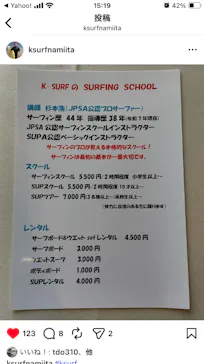 Yahoo!
15:19
投稿
ksurfnamiita
ksurfnamiita
K-SURFの SURFING SCHOOL
講師 杉本浩(JPSA公認プロサーファー)
サーフィン歴 44年 指導歴 38年
JPSA公認サーフィンスクールインストラクター
SUPA公認ベーシックインストラクター
サーフィンのプロが教える本格的なスクール!
サーフィンは最初の基本が一番大切です。
スクール
サーフィンスクール 5,500円/2時間程度 小学生以上〜
SUPスクール 5,500円/2時間程度 10才以上〜
SUPツアー 7,000円/3名様以上〜高校生以上〜
レンタル
サーフボード&ウエットsetレンタル 4,500円
サーフボード 3,000円
ウエットスーツ 3,000円
ボディボード 1,000円
SUPレンタル 4,000円
123
8
2
いいね!:tdo310、他
ksurfnamiita #ksurf